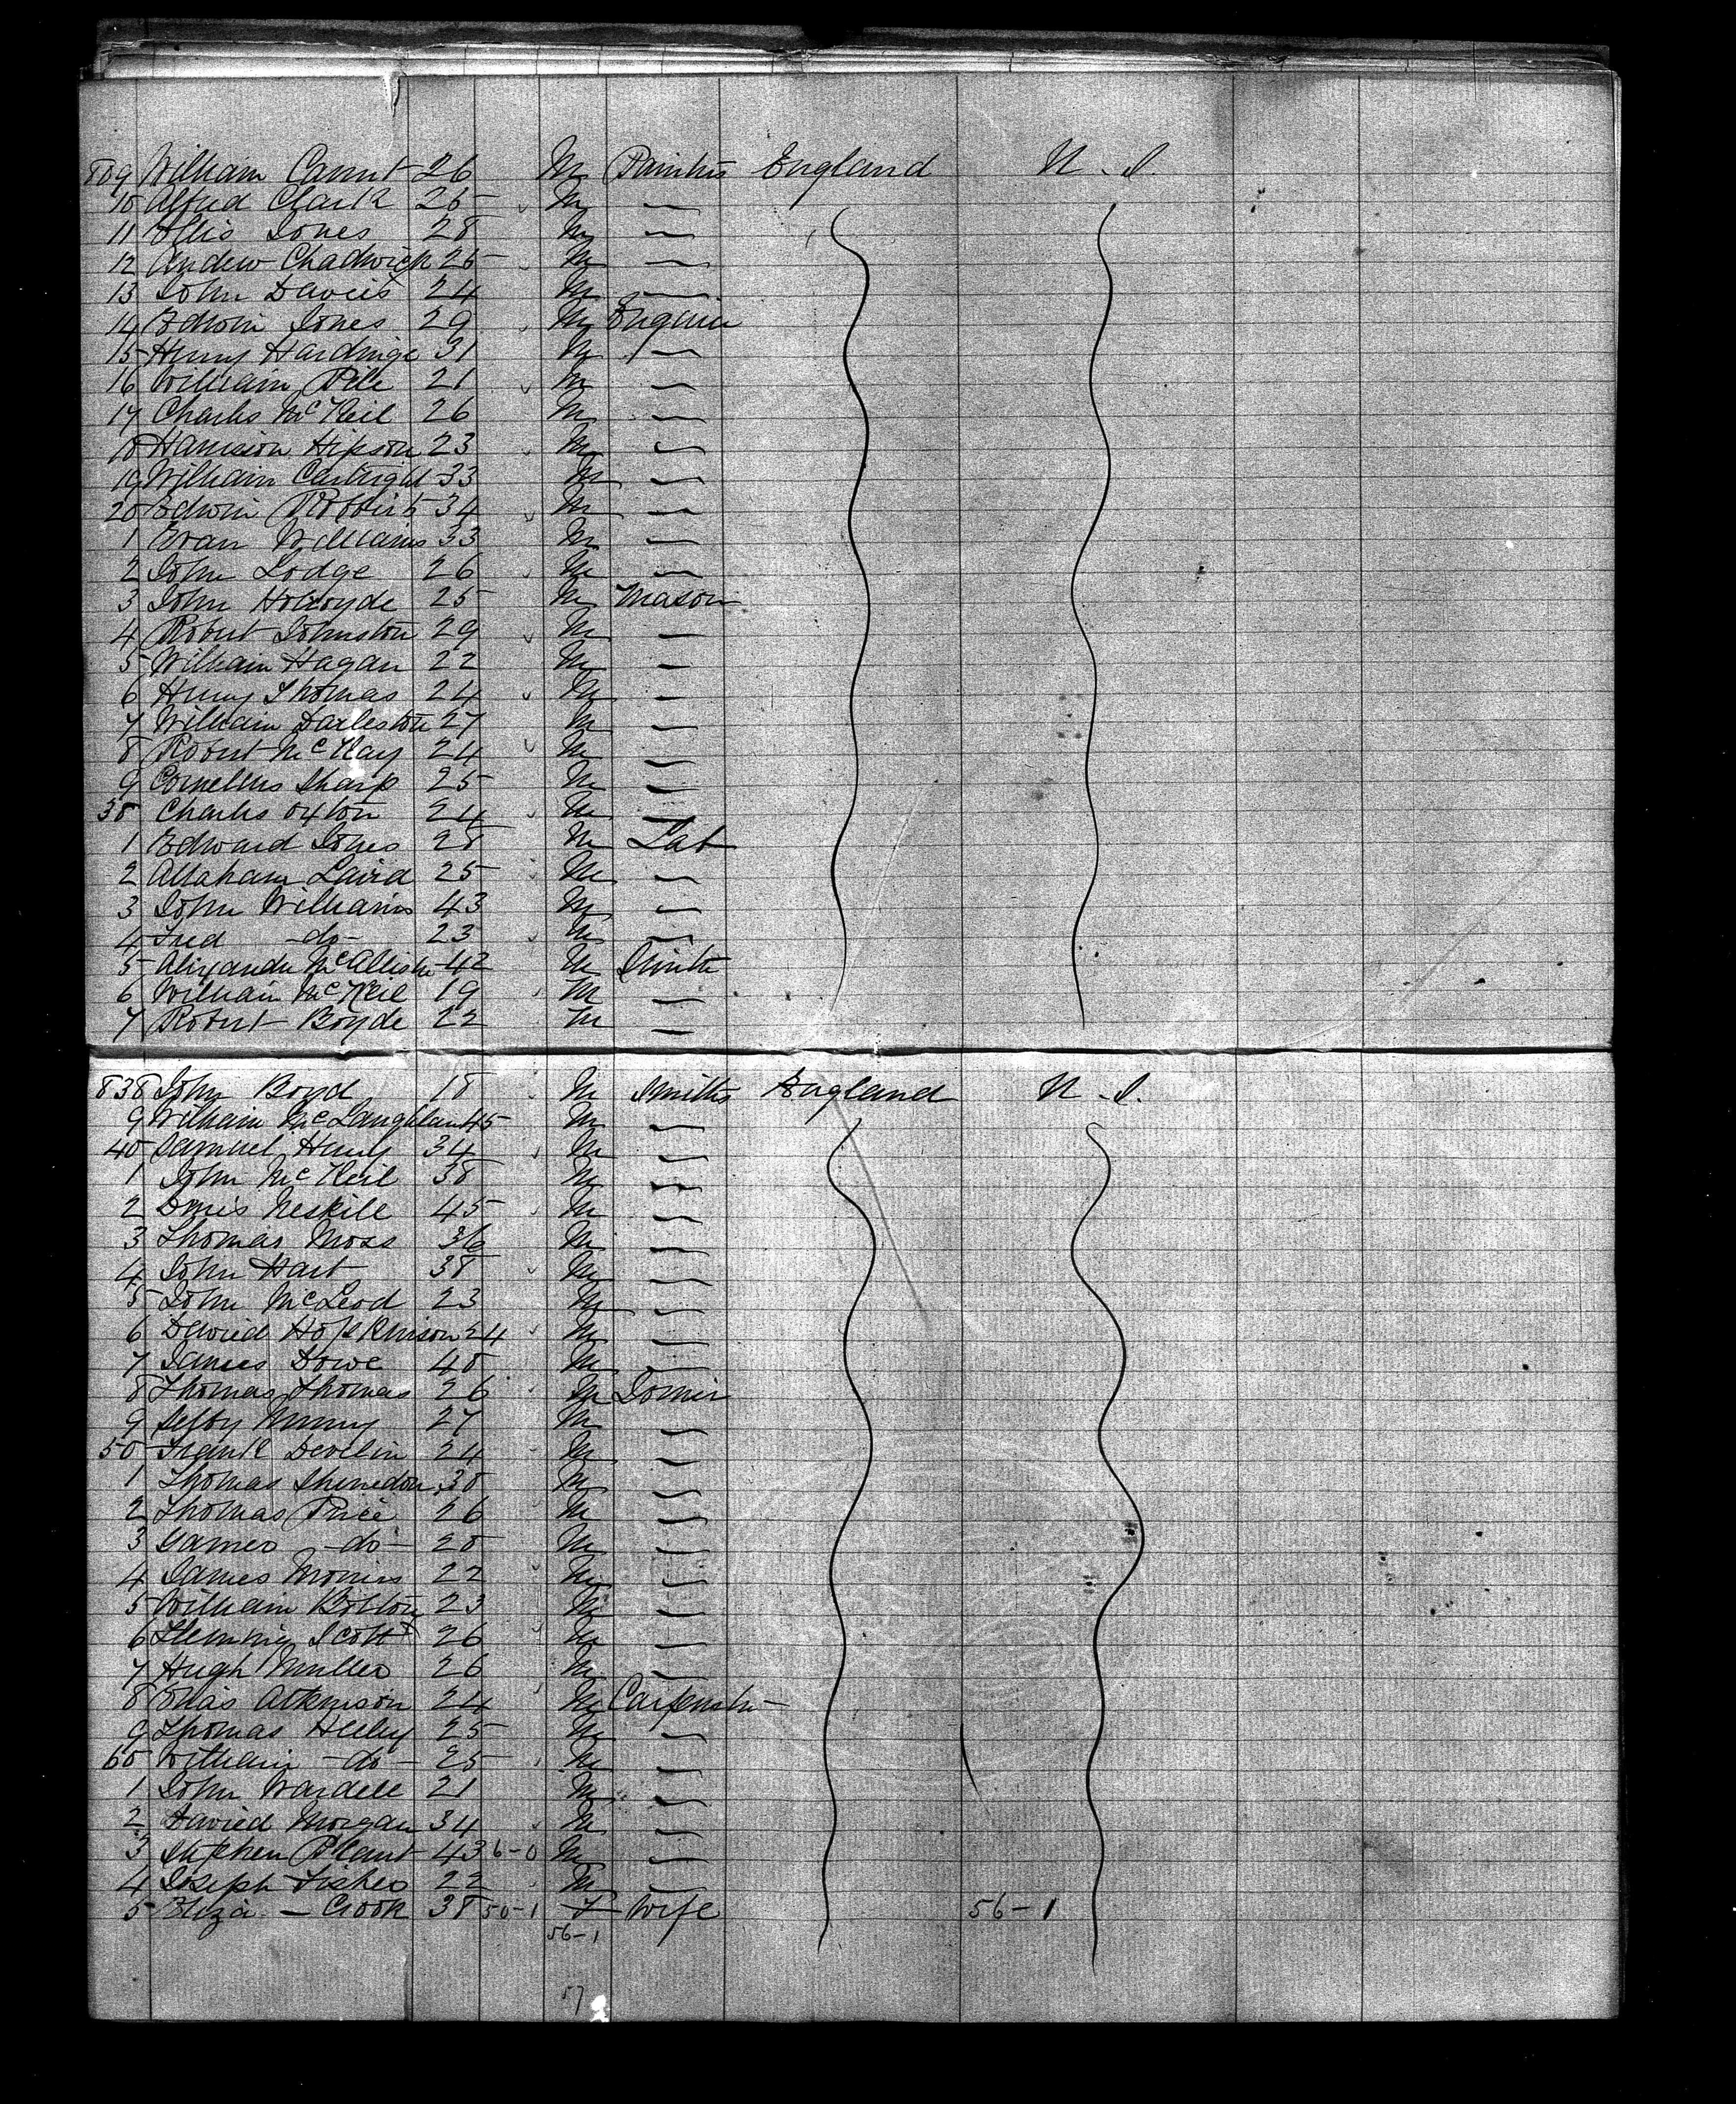 809 William Cannt 26 M Painters England U. S.
10 Alfred Clark 25 M —
11 Ellis Jones 28 M —
12 Andrew Chadwick 25 M —
13 John Davies 24 M —
14 Edwin Jones 29 M Engine
15 Henry Hardinge 31 M —
16 William Pile 21 M —
17 Charles McNeil 26 M —
18 Harrison Hipson 23 M —
19 William Cartright 33 M —
20 Edwin Robbins 34 M —
1 Evan Williams 33 M —
2 John Lodge 26 M —
3 John Holroyde 25 M Mason
4 Robert Johnston 29 M —
5 William Hagan 22 M —
6 Henry Thomas 24 M —
7 William Darleston 27 M —
8 Robert McKay 24 M —
9 Cornellus Sharp 25 M —
30 Charles Oxton 24 M —
1 Edward Jones 28 M Lab
2 Abraham Laird 25 M —
3 John Williams 43 M —
4 Fred -do- 23 M —
5 Alixander McAllister 42 M Smith
6 William McNeil 19 M —
7 Robert Boyde 22 M —
838 John Boyd 18 M Smiths England U. S.
9 William McLaughlan 45 M —
40 Samuel Henry 34 M —
1 John McNeil 38 M —
2 Denis Neskill 45 M —
3 Thomas Moss 36 M —
4 John Hart 38 M —
5 John McLeod 23 M —
6 David Hopkinson 24 M —
7 James Dowe 40 M —
8 Thomas Thomas 26 M Joiner
9 Murray 27 M —
50 Frank Devlin 24 M —
1 Thomas 30 M —
2 Thomas Price 26 M —
3 James -do- 20 M —
4 James Morris 22 M —
5 William Bolton 23 M —
6 Flemming Scott 26 M —
7 Hugh Muller 26 M —
8 Elias Atkinson 24 M Carpenter
9 Thomas Heley 25 M —
60 William -do- 25 M —
1 John Wardell 21 M —
2 David Morgan 34 M —
3 Stephen Plant 43 6-0 M —
4 Joseph Fisher 22 M —
5 Eliza — Crook 38 50-1 F Wife 56-1
56-1
57